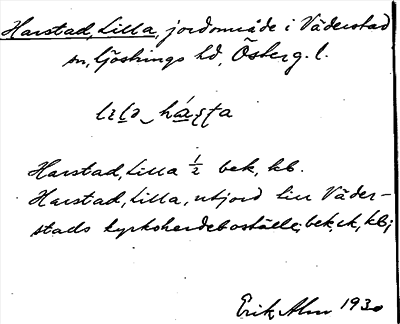 Harstad, Lilla, jordområde i Väderstad
sn, Göstrings hd, Österg. l.
Harstad, Lilla ½ bek, kb.
Harstad, Lilla, utjord till Väder-
stads kyrkoherdeboställe; bek, ck, kb;
Erik Alm 1930